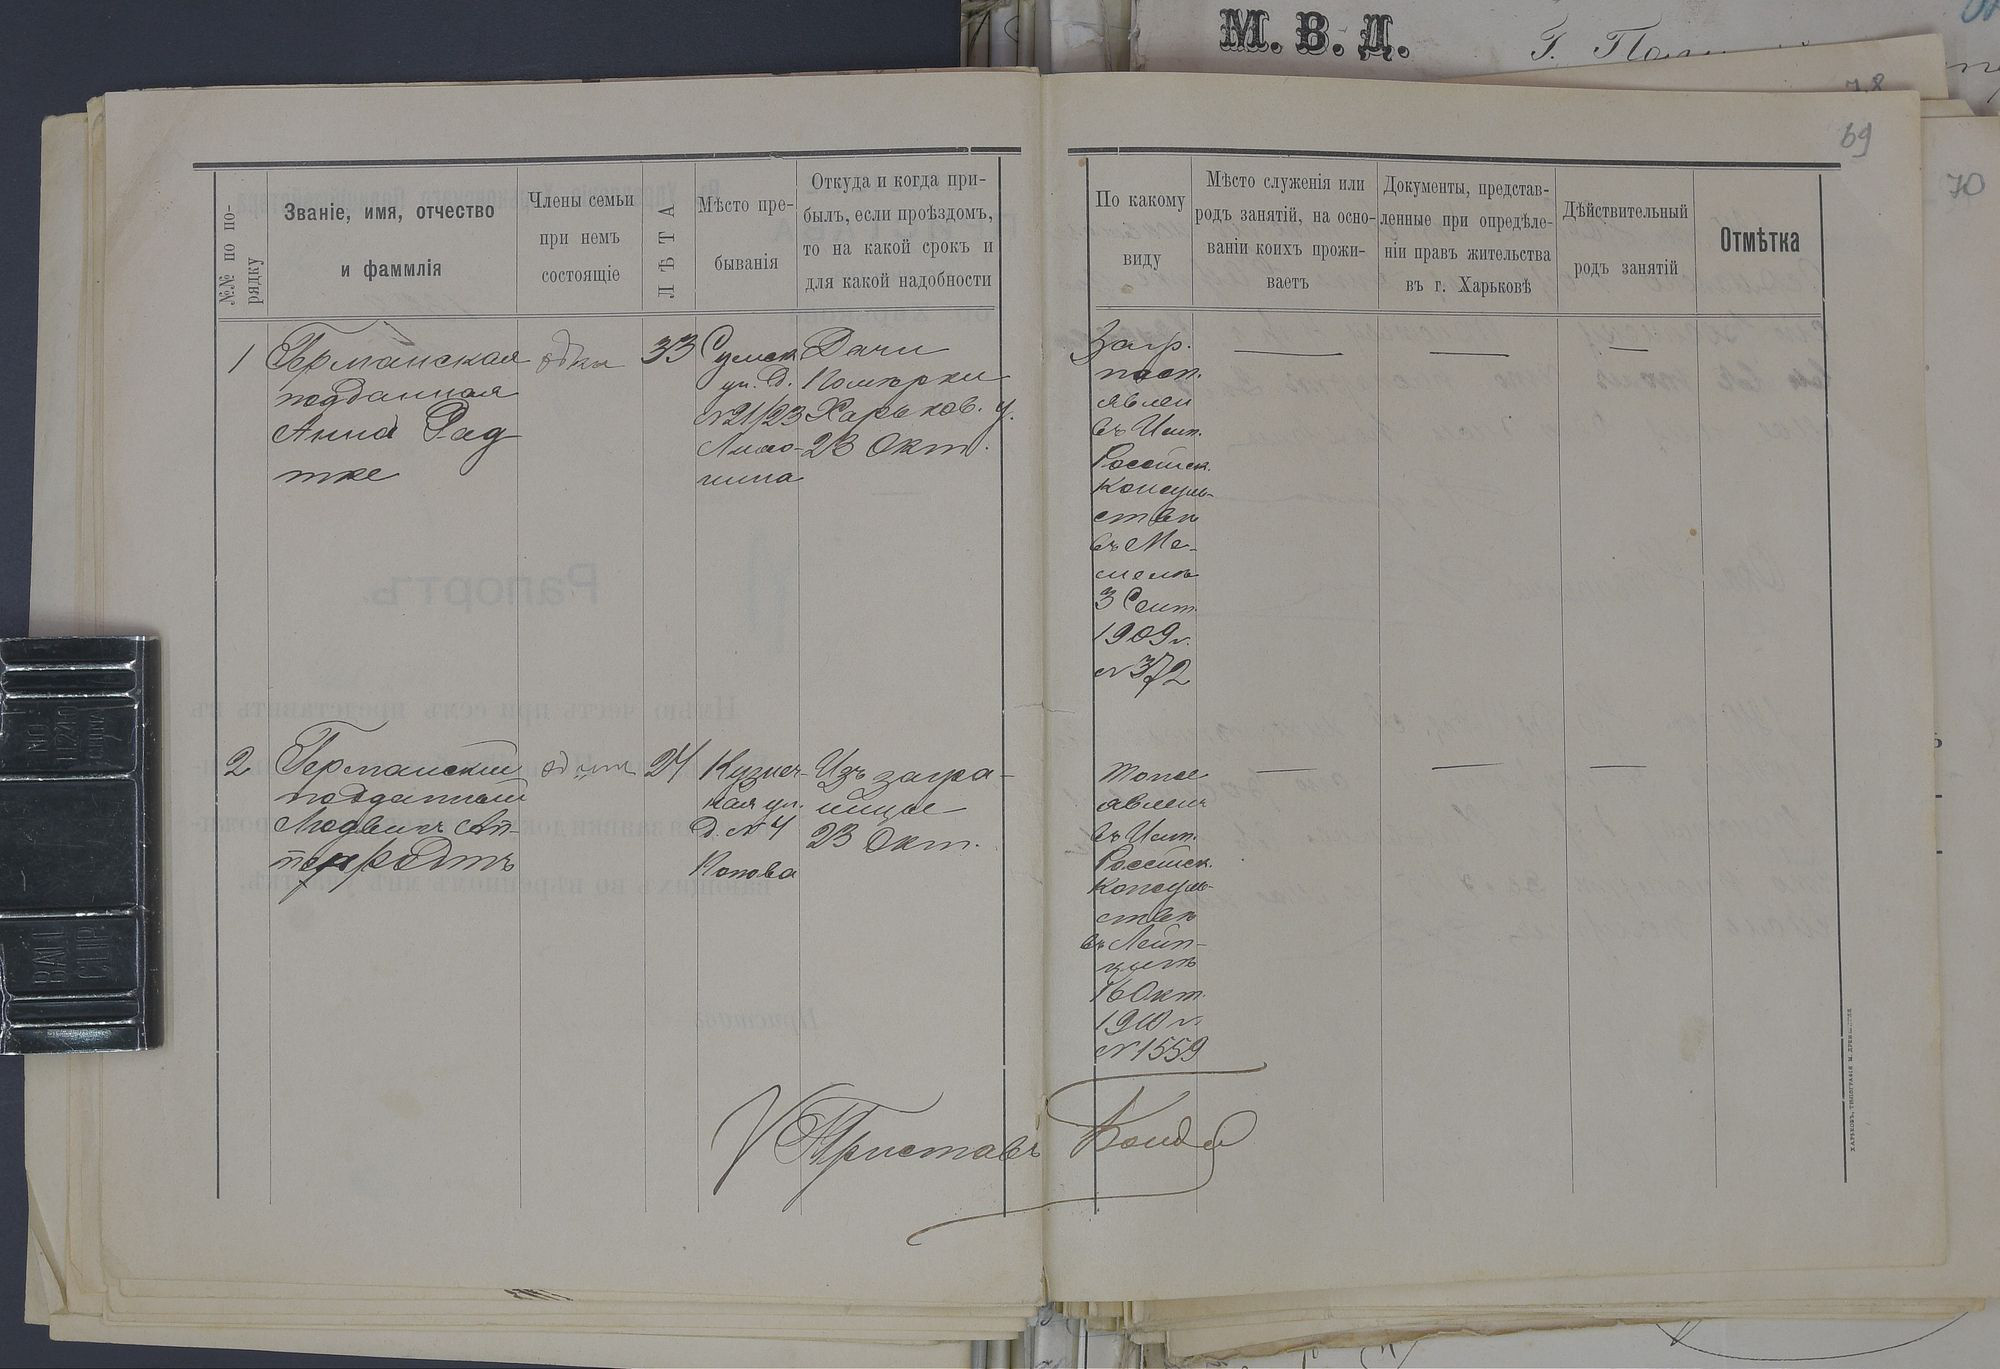 М. В. Д.
69
70
№№ по по-
рядку
Званіе, имя, отчество
и фаммлія
Члены семьи
при немъ
состоящіе
ЛѢТА
Мѣсто пре-
быванія
Откуда и когда при-
былъ, если проѣздомъ,
то на какой срокъ и
для какой надобности
По какому
виду
Мѣсто служенія или
родъ занятій, на осно-
ваніи коихъ прожи-
ваетъ
Документы, представ-
ленные при опредѣле-
ніи правъ жительства
въ г. Харьковѣ
Дѣйствительный
родъ занятій
Отмѣтка
1
Германская
подданная
Анна Рад
тке
одна
33
Сумск
ул. д.
№21/23
Дачи
Помѣрки
Харьков. у.
23 Окт.
Загр.
пасп.
явлен
въ Имп.
Россійск.
Консуль-
ствѣ
въ Ме-
мелѣ
3 Сент.
1909 г.
№ 372
2
Германскій
подданный
Людвигъ
одинъ
24
Кузнеч-
ная ул.
д. № 4
Попова
Изъ загра-
ницы
23 Окт.
тоже
явленъ
въ Имп.
Россійск.
Консуль-
ствѣ
въ Лейп-
цигѣ
16 Окт.
1910 г.
№ 1559
Приставъ
ХАРЬКОВЪ, ТИПОГРАФІЯ